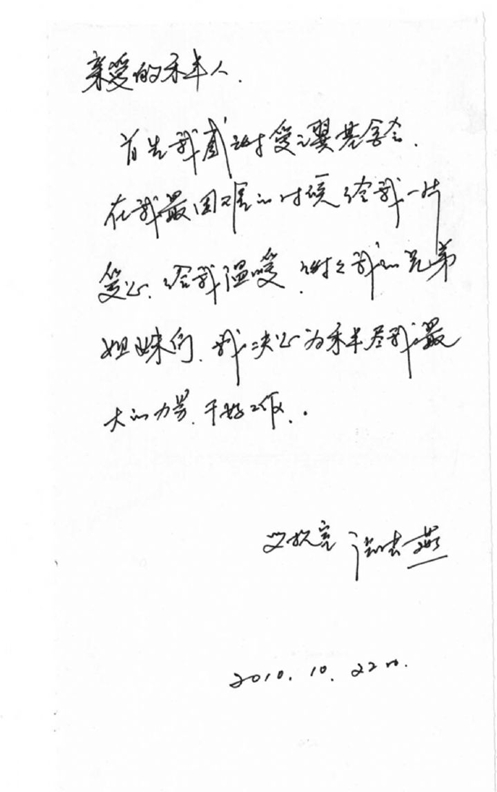 亲爱的禾丰人.
首先我感谢爱之翼基金会.
在我最困难的时候给我一片
爱心.给我温暖.谢谢我的兄弟
姐妹们.我决心为禾丰尽我最
大的力量.干好工作..
燕
2010.10.22日.